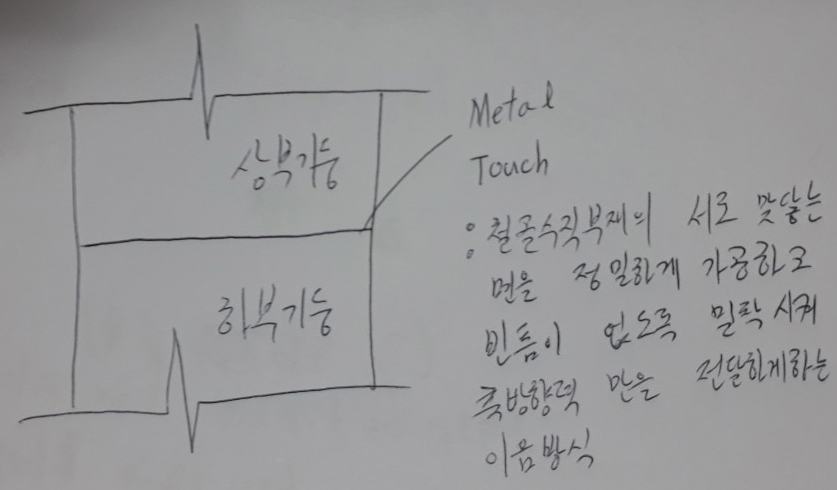 상부기둥
하부기둥
Metal
Touch
: 철골수직부재의 서로 맞닿는
면을 정밀하게 가공하고
빈틈이 없도록 밀착시켜
축방향력 만을 전달하게하는
이음방식